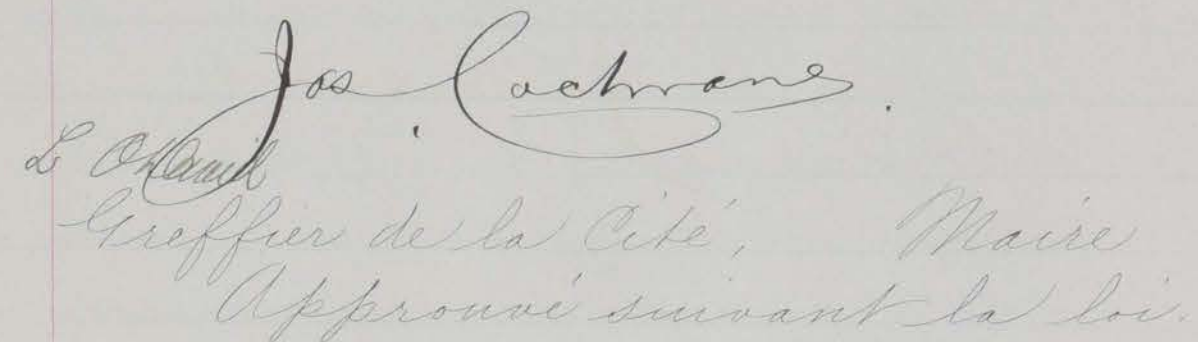 Jos. Cochrane.
L O
Greffier de la Cité, Maire
Approuvé suivant la loi.